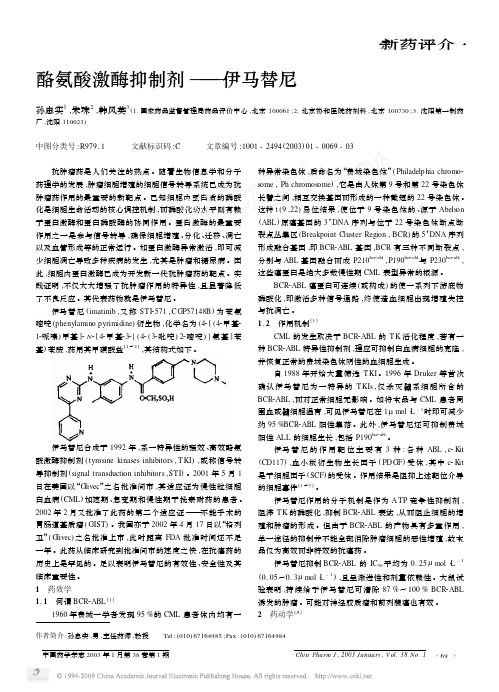 新药评介·
酪氨酸激酶抑制剂——伊马替尼
孙忠实1,朱珠2,韩风英3(1.国家药品监督管理局药品评价中心,北京 100061;2.北京协和医院药剂科,北京 100730;3.沈阳第一制药
厂,沈阳 110023)
中图分类号:R979.1 文献标识码:C 文章编号:1001-2494(2003)01-0069-03
抗肿瘤药是人们关注的热点。随着生物信息学和分子
药理学的发展,肿瘤细胞增殖的细胞信号转导系统已成为抗
肿瘤药作用的最重要的新靶点。已知细胞内蛋白质的磷酸
化是细胞生命活动的核心调控机制,而磷酸化的水平则有赖
于蛋白激酶和蛋白磷酸酶的协同作用。蛋白激酶的最重要
作用之一是参与信号转导,确保细胞增殖、分化、迁移、凋亡
以及血管形成等的正常运行。如蛋白激酶异常激活,即可减
少细胞凋亡导致多种疾病的发生,尤其是肿瘤和糖尿病。因
此,细胞内蛋白激酶已成为开发新一代抗肿瘤药的靶点。实
践证明,不仅大大增强了抗肿瘤作用的特异性,且显著降低
了不良反应。其代表药物就是伊马替尼。
伊马替尼(imatinib,又称 STI-571,CGP57148B)为苯氨
嘧啶(phenylamino pyrimidine)衍生物,化学名为(4-[(4-甲基-
1-哌嗪)甲基]-N-[4-甲基-3-[(4-(3-吡啶)2-嘧啶)]氨基]苯
基)苯胺,药用其甲磺酸盐[1~2],其结构式如下。
N
H
N
H
N
N
N
O
N
N
CH3SO3H
伊马替尼合成于 1992 年,系一特异性的强效、高效酪氨
酸激酶抑制剂(tyrosine kinases inhibitors,TKI),或称信号转
导抑制剂(signal transduction inhibitors,STI)。2001 年 5 月 1
日在美国以“Glivec”之名批准问市,其适应证为慢性粒细胞
白血病(CML)加速期、急变期和慢性期干扰素耐药的患者。
2002 年 2 月又批准了此药的第二个适应证——不能手术的
胃肠道基质瘤(GIST)。我国亦于 2002 年 4 月 17 日以“格列
卫”(Glivec)之名批准上市,此时距离 FDA 批准时间还不足
一年。此药从临床研究到批准问市的速度之快,在抗癌药的
历史上是罕见的。足以表明伊马替尼的有效性、安全性及其
临床重要性。
1 药效学
1.1 何谓 BCR-ABL[1]
1960 年费城一学者发现 95 %的 CML 患者体内均有一
种异常染色体,后命名为“费城染色体”(Philadelphia chromo-
some,Ph chromosome),它是由人体第 9 号和第 22 号染色体
长臂之间,相互交换基因而形成的一种截短的 22 号染色体。
这种 t(9,22)易位结果,使位于 9 号染色体的、源于 Abelson
(ABL)原癌基因的 3′DNA 序列与位于 22 号染色体断点断
裂点丛集区(Breakpoint Cluster Region,BCR)的 5′DNA 序列
形成融合基因,即 BCR-ABL 基因,BCR 有三种不同断裂点,
分别与 ABL 基因融合而成 P210bcr-abl,P190bcr-abl与 P230bcr-abl,
这些癌蛋白是绝大多数慢性期 CML 表型异常的根源。
BCR-ABL 癌蛋白可连续(或构成)的使一系列下游底物
磷酸化,即激活多种信号通路,终使造血细胞出现增殖失控
与抗凋亡。
1.2 作用机制[1]
CML 的发生取决于 BCR-ABL 的 T K 活化程度,若有一
种 BCR-ABL 特异性抑制剂,理应可抑制白血病细胞的克隆,
并恢复正常的费城染色体阴性的血细胞生成。
自 1988 年开始大量筛选 TKI。1996 年 Druker 等首次
确认伊马替尼为一特异的 TKIs,仅杀灭髓系细胞所含的
BCR-ABL,而对正常细胞无影响。如将末品与 CML 患者周
围血或髓细胞温育,可见伊马替尼在 1μ mol·L-1时即可减少
约 95 %BCR-ABL 阳性集落。此外,伊马替尼还可抑制费城
阳性 ALL 的细胞生长,包括 P190bcr-abl。
伊马替尼的作用靶位主要有 3 种:各种 ABL,c-Kit
(CD117),血小板衍生物生长因子(PDGF)受体,其中 c-Kit
是干细胞因子(SCF)的受体。作用结果是阻抑上述靶位介导
的细胞事件[1~3]。
伊马替尼作用的分子机制是作为 ATP 竞争性抑制剂,
阻滞 TK 的磷酸化,抑制 BCR-ABL 表达,从而阻止细胞的增
殖和肿瘤的形成。但由于 BCR-ABL 的产物具有多重作用,
单一途径的抑制并不能全部消除肿瘤细胞的恶性增殖,故末
品仅为高效而非特效的抗癌药。
伊马替尼抑制 BCR-ABL 的 IC50平均为 0.25μ mol·L-1
(0.05~0.3μ mol·L-1),且呈渐进性和剂量依赖性。大鼠试
验表明,持续给予伊马替尼可消除 87 %~100 % BCR-ABL
诱发的肿瘤。可能对神经胶质瘤和前列腺癌也有效。
2 药动学[3]
作者简介:孙忠实,男,主任药师,教授 Tel:(010)67164985;Fax:(010)67164984
中国药学杂志 2003 年 1 月第 38 卷第 1 期 Chin Pharm J,2003 January,Vol. 38 No. 1 ·69·
© 1994-2009 China Academic Journal Electronic Publishing House. All rights reserved. http://www.cnki.net